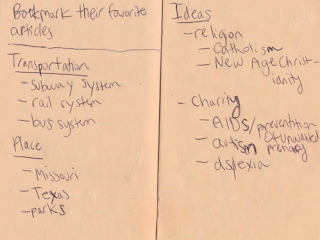 Bookmark their favorite
articles
Transportation
- subway system
- rail system
- bus system
Place
- Missouri
- Texas
- parks
Ideas
- religion
- Catholism
- New Age Christ-
ianity
- Charity
- AIDS/prevention
of unwanted
- autism
- dyslexia